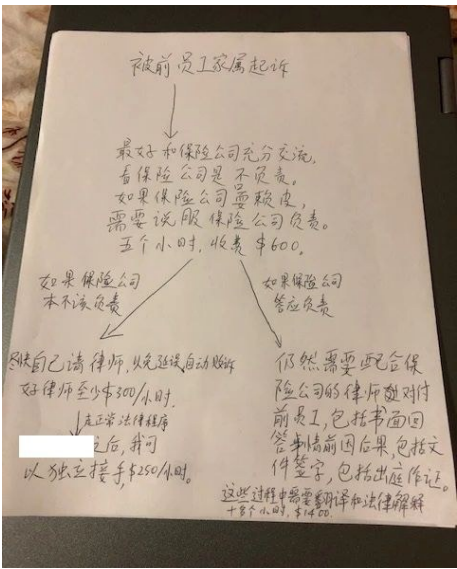 被前员工家属起诉
最好和保险公司充分交流,
看保险公司是不负责。
如果保险公司耍赖皮,
需要说服保险公司负责。
五个小时, 收费$600.
如果保险公司
本不该负责
尽快自己请律师, 以免延误, 自动败诉
好律师至少$300/小时.
走正常法律程序
之后, 我可
以独立接手, $250/小时。
如果保险公司
答应负责
仍然需要配合保
险公司的律师对付
前员工, 包括书面回
答事情前因后果, 包括文
件签字, 包括出庭作证。
这些过程中需要翻译和法律解释
个小时, $1400.